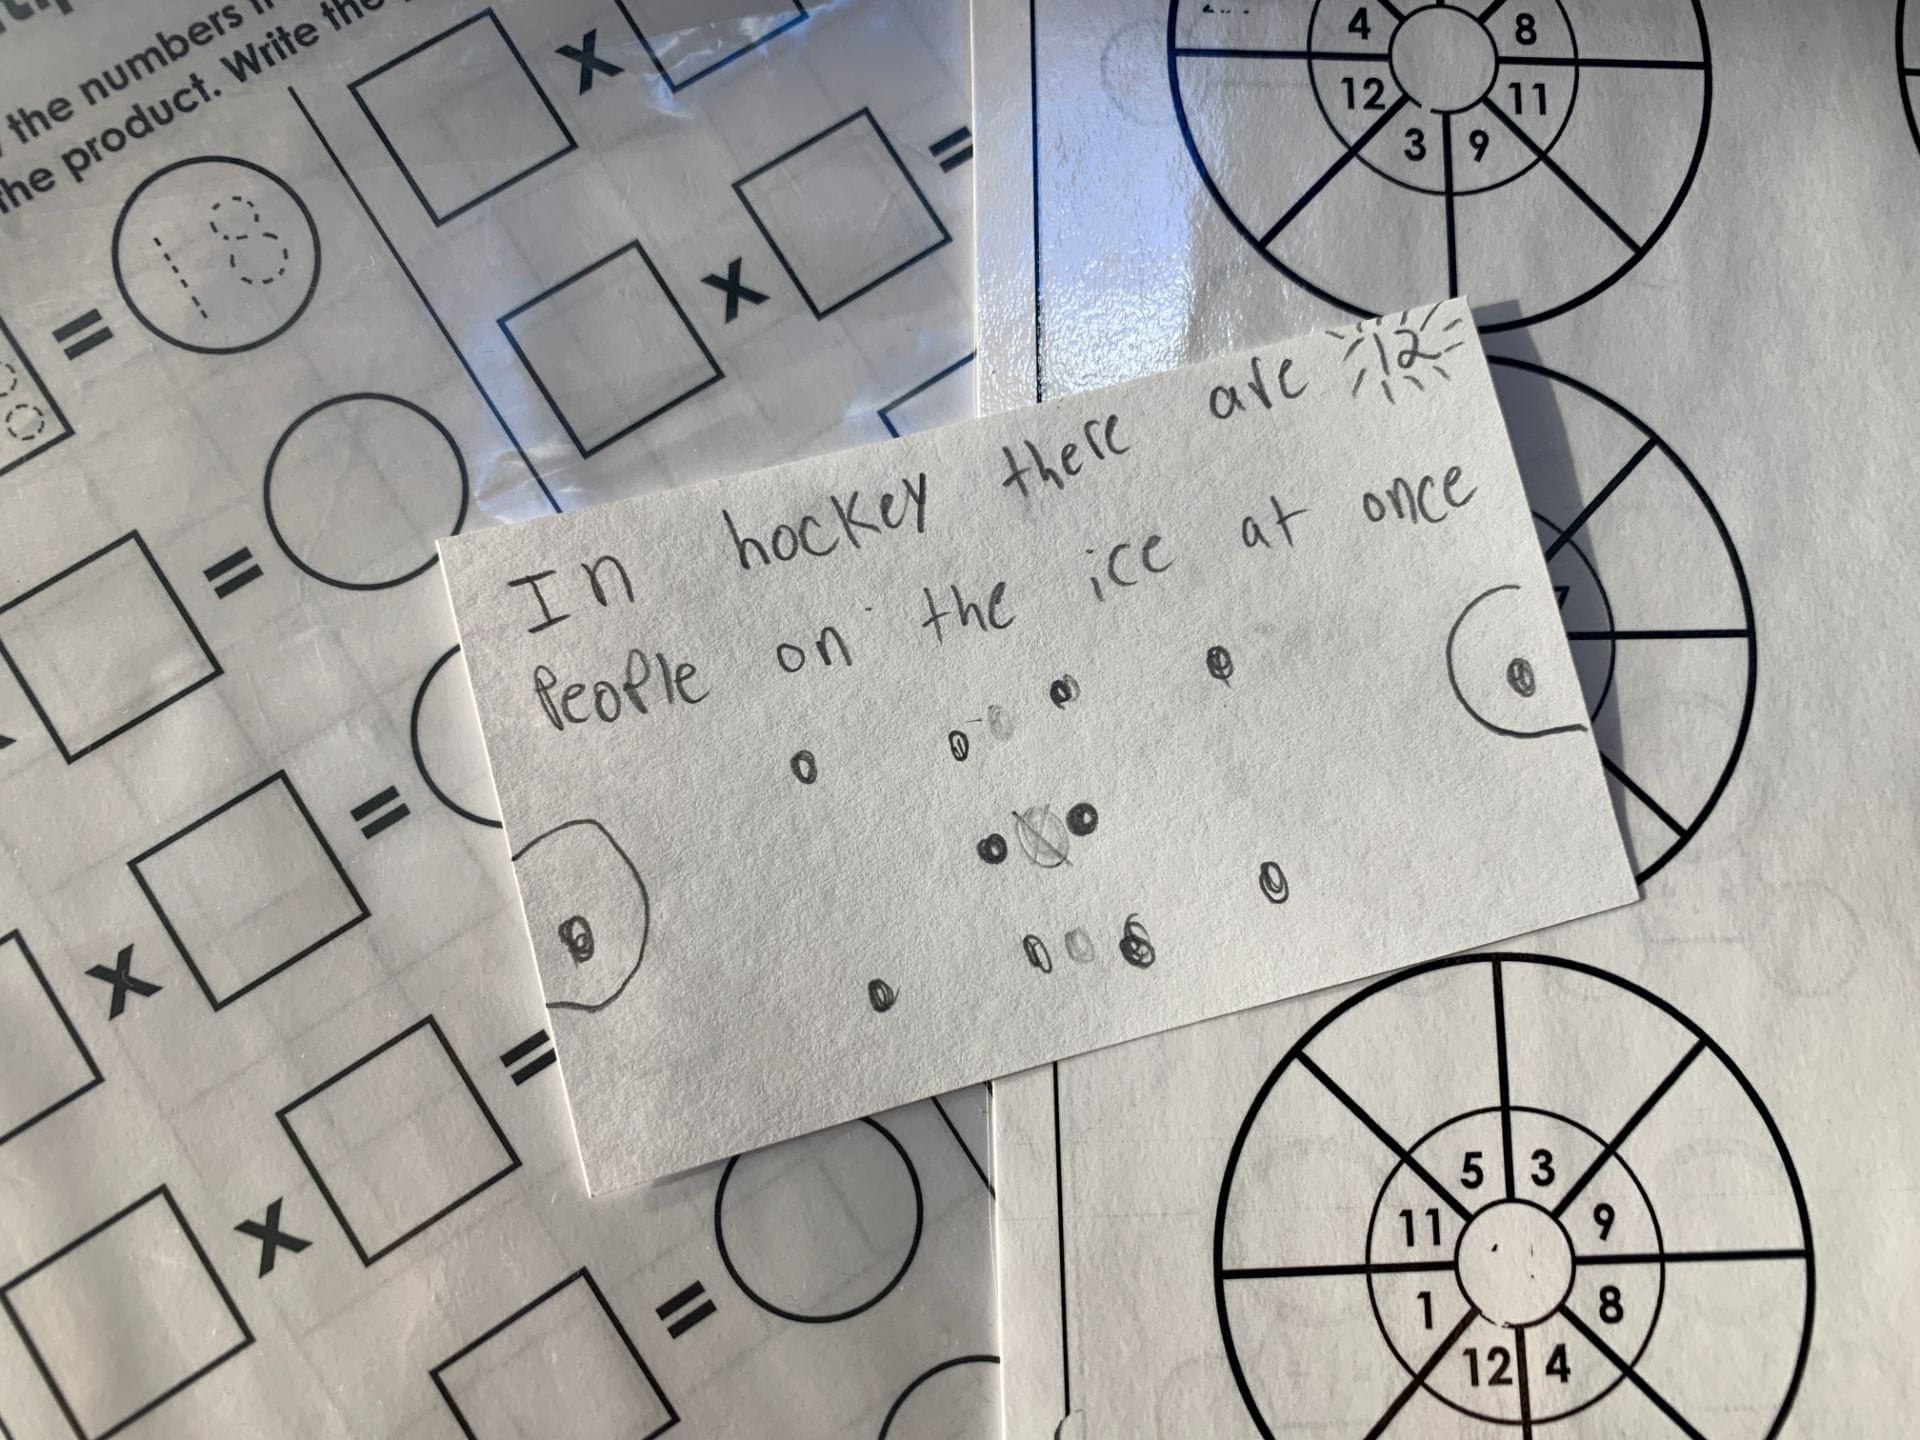 the numbers
the product. Write the
= 18
X
X =
=
=
X
X =
=
4 8
12 11
3 9
In hockey there are 12
People on the ice at once
7
5 3
11 9
1 8
12 4